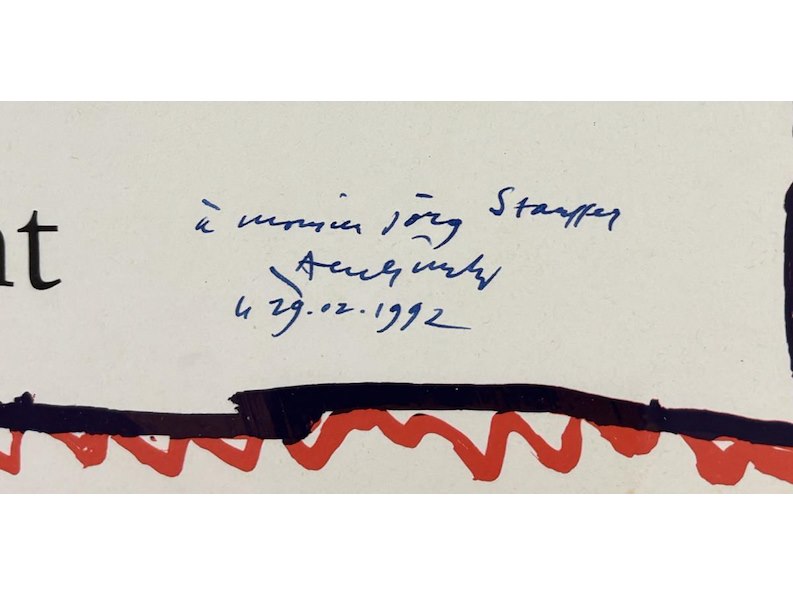 nt
à monsieur Jörg Stauffer
le 29.02.1992